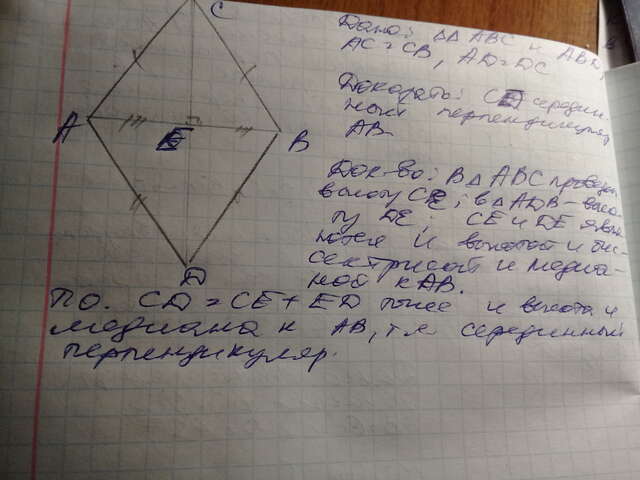 C
A
E
B
D
Дано: ΔΔ ABC и ABD,
AC=CB, AD=DC
Доказать: CD середин
ный перпендикуляр
AB.
Док-во: В Δ ABC проведем
высоту CE; в Δ ADB - высо
ту DE. CE и DE явл
яются и высотой и би-
сектрисой и медиа-
ной к AB.
т.о. CD = CE + ED тоже и высота и
медиана к AB, т.е серединный
перпендикуляр.